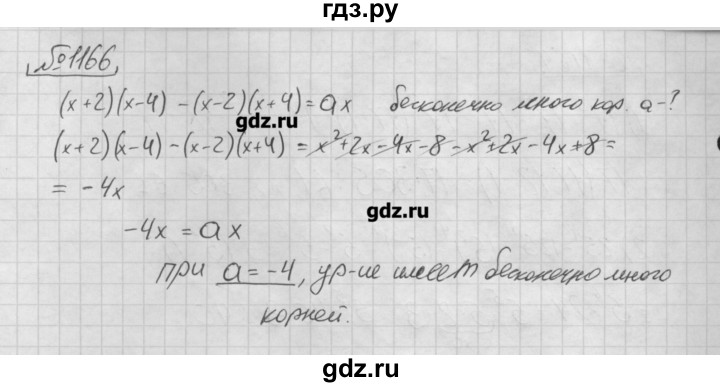 гдз.ру
№1166
(x+2)(x-4) - (x-2)(x+4) = ax бесконечно много кор. a-?
gdz.ru
(x+2)(x-4) - (x-2)(x+4) = x²+2x-4x-8-x²+2x-4x+8=
= -4x
gdz.ru
-4x = ax
при a=-4, ур-ие имеет бесконечно много
корней.
gdz.ru